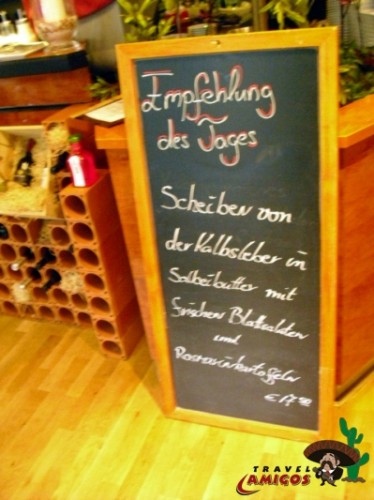 Empfehlung
des Tages
Scheiben von
der Kalbsleber in
Salbeibutter mit
frischen Blattsalaten
und
Rosmarinkartoffeln
€ 17,90
TRAVEL
AMIGOS